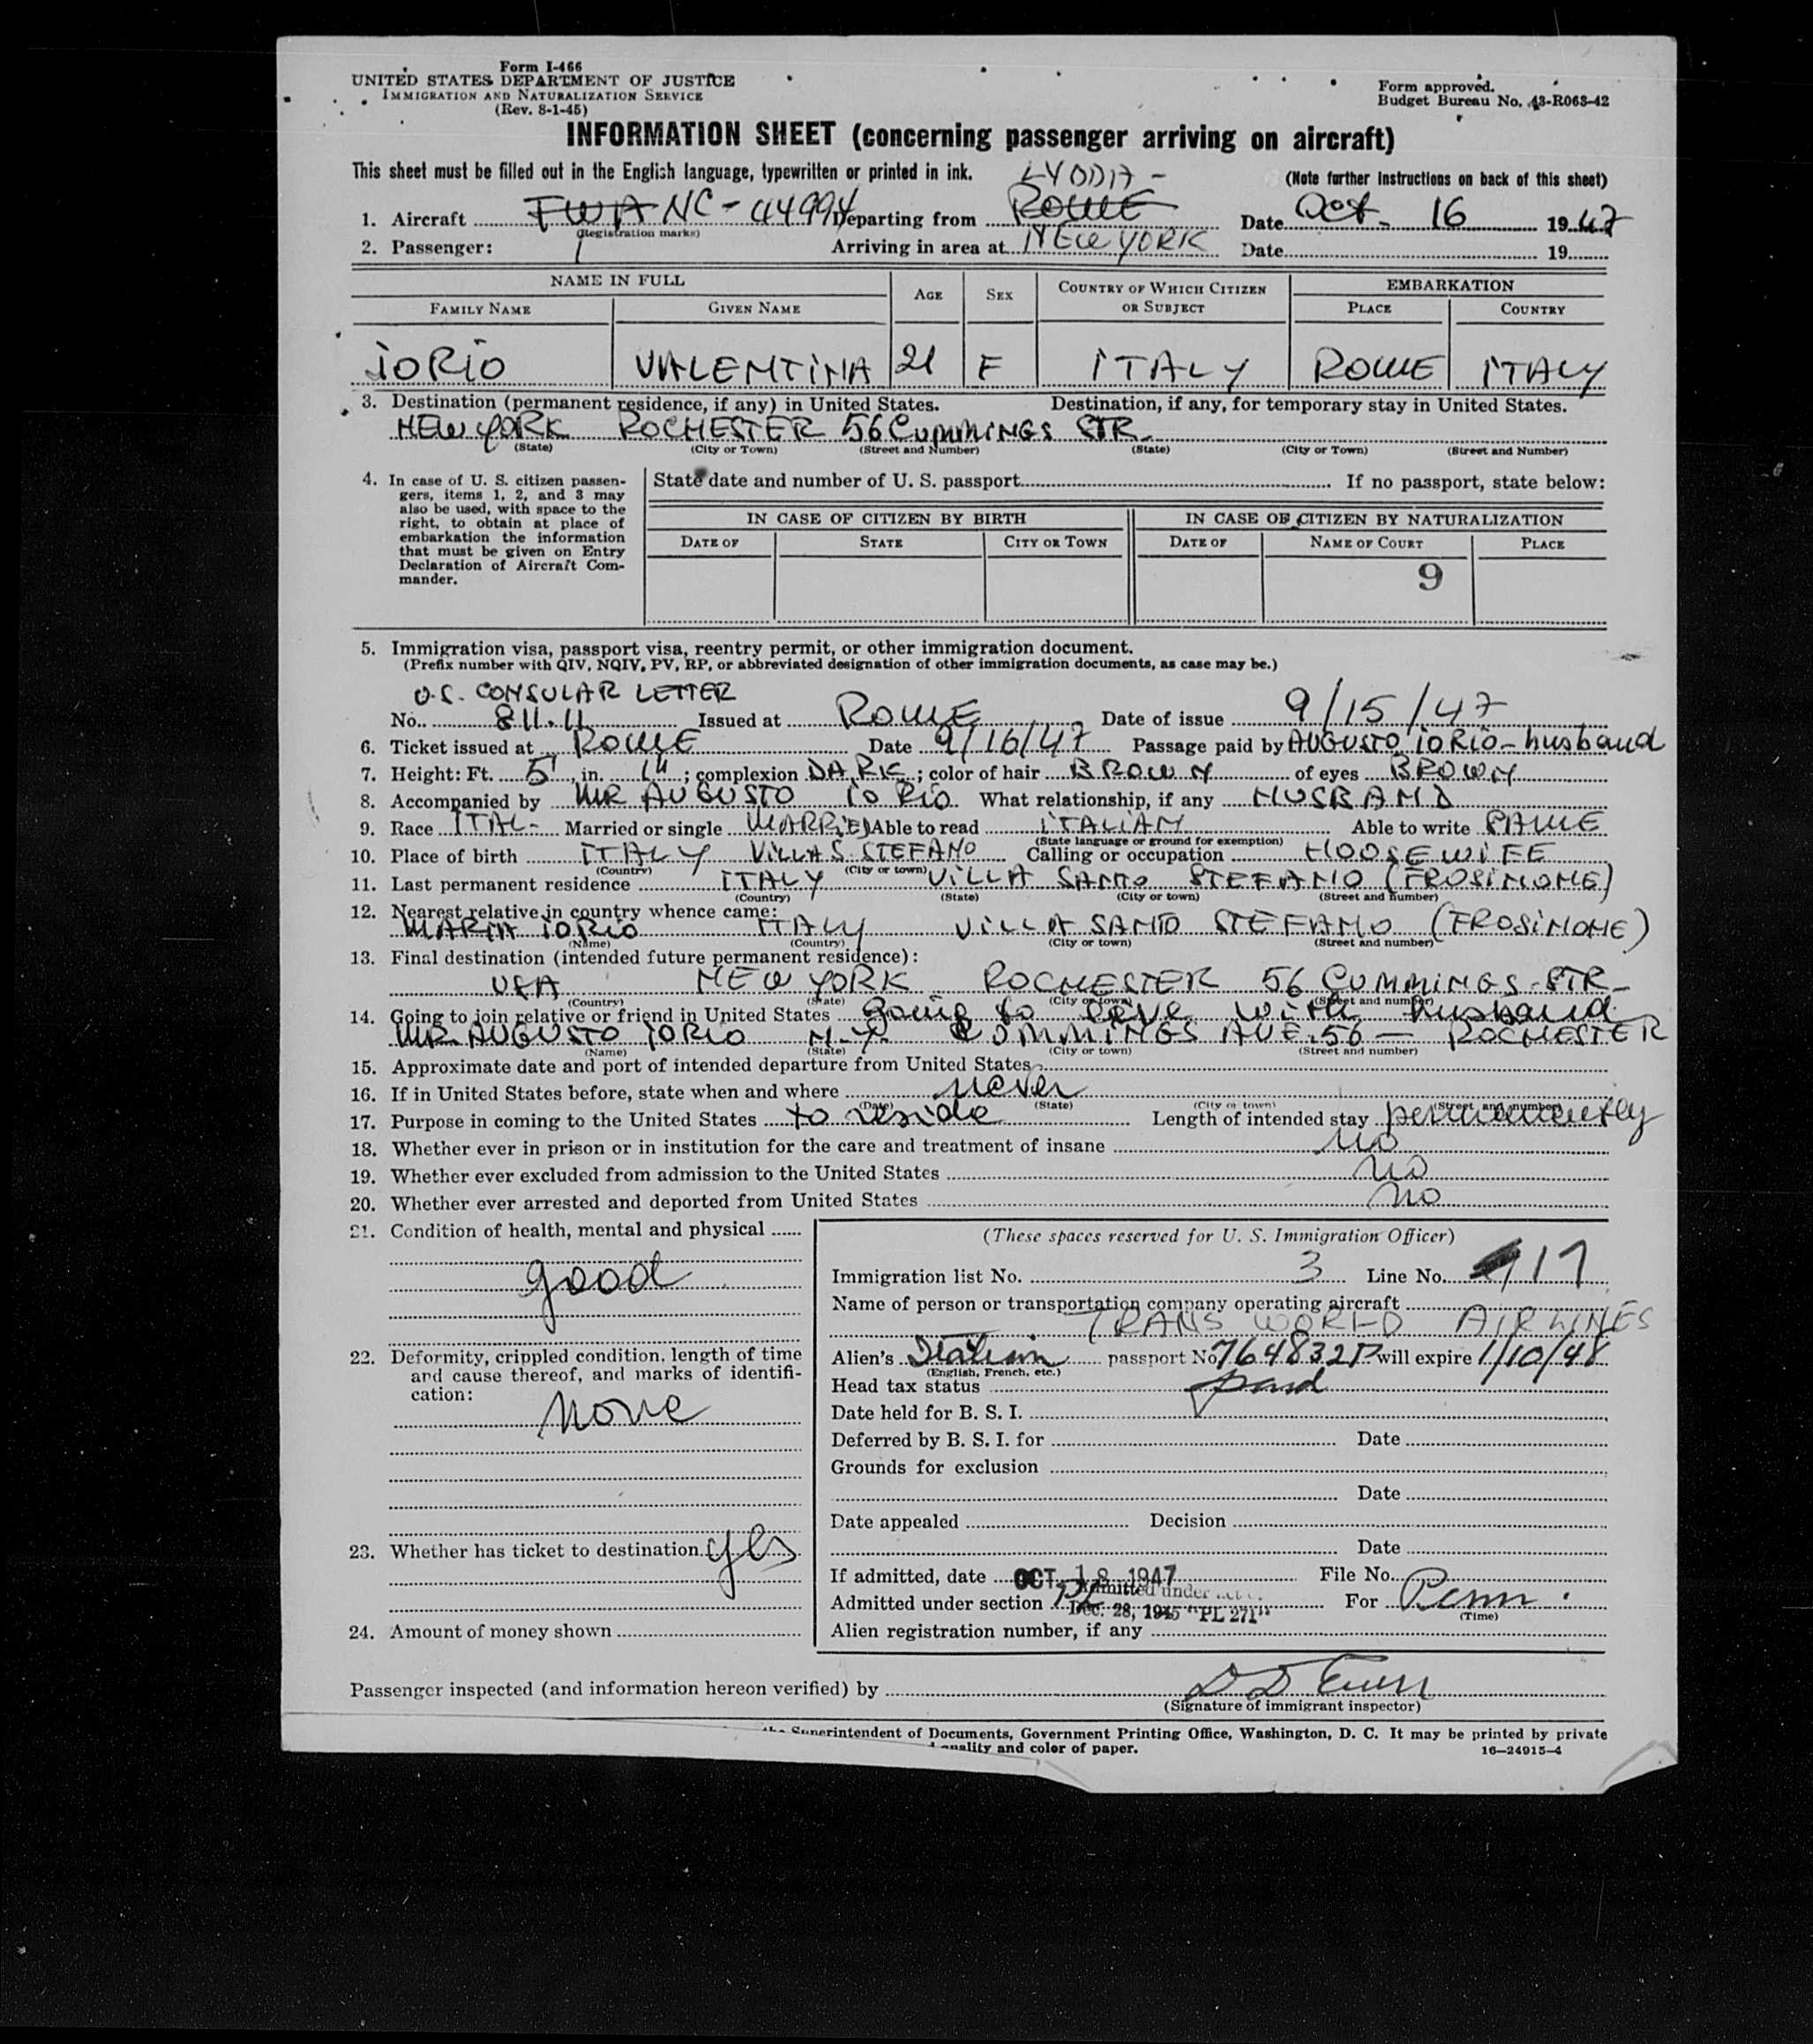 Form I-466
UNITED STATES DEPARTMENT OF JUSTICE
IMMIGRATION AND NATURALIZATION SERVICE
(Rev. 8-1-45)
Form approved.
Budget Bureau No. 43-R063-42
INFORMATION SHEET (concerning passenger arriving on aircraft)
This sheet must be filled out in the English language, typewritten or printed in ink. (Note further instructions on back of this sheet)
LYDDA -
1. Aircraft TWA NC-44994 Departing from ROME Date Oct - 16 1947
(Registration marks)
2. Passenger: 1 Arriving in area at NEW YORK Date 19
NAME IN FULL AGE SEX COUNTRY OF WHICH CITIZEN OR SUBJECT EMBARKATION
FAMILY NAME GIVEN NAME PLACE COUNTRY
IORIO VALENTINA 21 F ITALY ROME ITALY
3. Destination (permanent residence, if any) in United States. Destination, if any, for temporary stay in United States.
NEW YORK ROCHESTER 56 CUMMINGS STR.
(State) (City or Town) (Street and Number) (State) (City or Town) (Street and Number)
4. In case of U. S. citizen passengers, items 1, 2, and 3 may also be used, with space to the right, to obtain at place of embarkation the information that must be given on Entry Declaration of Aircraft Commander.
State date and number of U. S. passport If no passport, state below:
IN CASE OF CITIZEN BY BIRTH IN CASE OF CITIZEN BY NATURALIZATION
DATE OF STATE CITY OR TOWN DATE OF NAME OF COURT PLACE
9
5. Immigration visa, passport visa, reentry permit, or other immigration document.
(Prefix number with QIV, NQIV, PV, RP, or abbreviated designation of other immigration documents, as case may be.)
U.S. CONSULAR LETTER
No. 811.11 Issued at ROME Date of issue 9/15/47
6. Ticket issued at ROME Date 9/16/47 Passage paid by AUGUSTO IORIO - husband
7. Height: Ft. 5', in. 1"; complexion DARK; color of hair BROWN of eyes BROWN
8. Accompanied by MR AUGUSTO IORIO What relationship, if any HUSBAND
9. Race ITAL- Married or single MARRIED Able to read ITALIAN Able to write SAME
(State language or ground for exemption)
10. Place of birth ITALY VILLA S. STEFANO Calling or occupation HOOSEWIFE
(Country) (City or town)
11. Last permanent residence ITALY VILLA SANTO STEFANO (FROSINONE)
(Country) (State) (City or town) (Street and number)
12. Nearest relative in country whence came:
MARIA IORIO ITALY VILLA SANTO STEFANO (FROSINONE)
(Name) (Country) (City or town) (Street and number)
13. Final destination (intended future permanent residence):
USA NEW YORK ROCHESTER 56 CUMMINGS-STR-
(Country) (State) (City or town) (Street and number)
14. Going to join relative or friend in United States Going to live with husband
MR. AUGUSTO IORIO N.Y. CUMMINGS AVE. 56 - ROCHESTER
(Name) (State) (City or town) (Street and number)
15. Approximate date and port of intended departure from United States
16. If in United States before, state when and where never
(Date) (State) (City or town) (Street and number)
17. Purpose in coming to the United States to reside Length of intended stay permanently
18. Whether ever in prison or in institution for the care and treatment of insane no
19. Whether ever excluded from admission to the United States no
20. Whether ever arrested and deported from United States no
21. Condition of health, mental and physical
good
22. Deformity, crippled condition, length of time and cause thereof, and marks of identification:
none
23. Whether has ticket to destination yes
24. Amount of money shown
(These spaces reserved for U. S. Immigration Officer)
Immigration list No. 3 Line No. 17
Name of person or transportation company operating aircraft
TRANS WORLD AIRLINES
Alien's Italian passport No 764832P will expire 1/10/48
(English, French, etc.)
Head tax status paid
Date held for B. S. I.
Deferred by B. S. I. for Date
Grounds for exclusion
Date
Date appealed Decision
Date
If admitted, date OCT 18 1947 File No.
Admitted under section PL Admitted under act Dec. 28, 1945 "PL 271" For Perm.
(Time)
Alien registration number, if any
Passenger inspected (and information hereon verified) by
(Signature of immigrant inspector)
the Superintendent of Documents, Government Printing Office, Washington, D. C. It may be printed by private
quality and color of paper.
16—24915-4